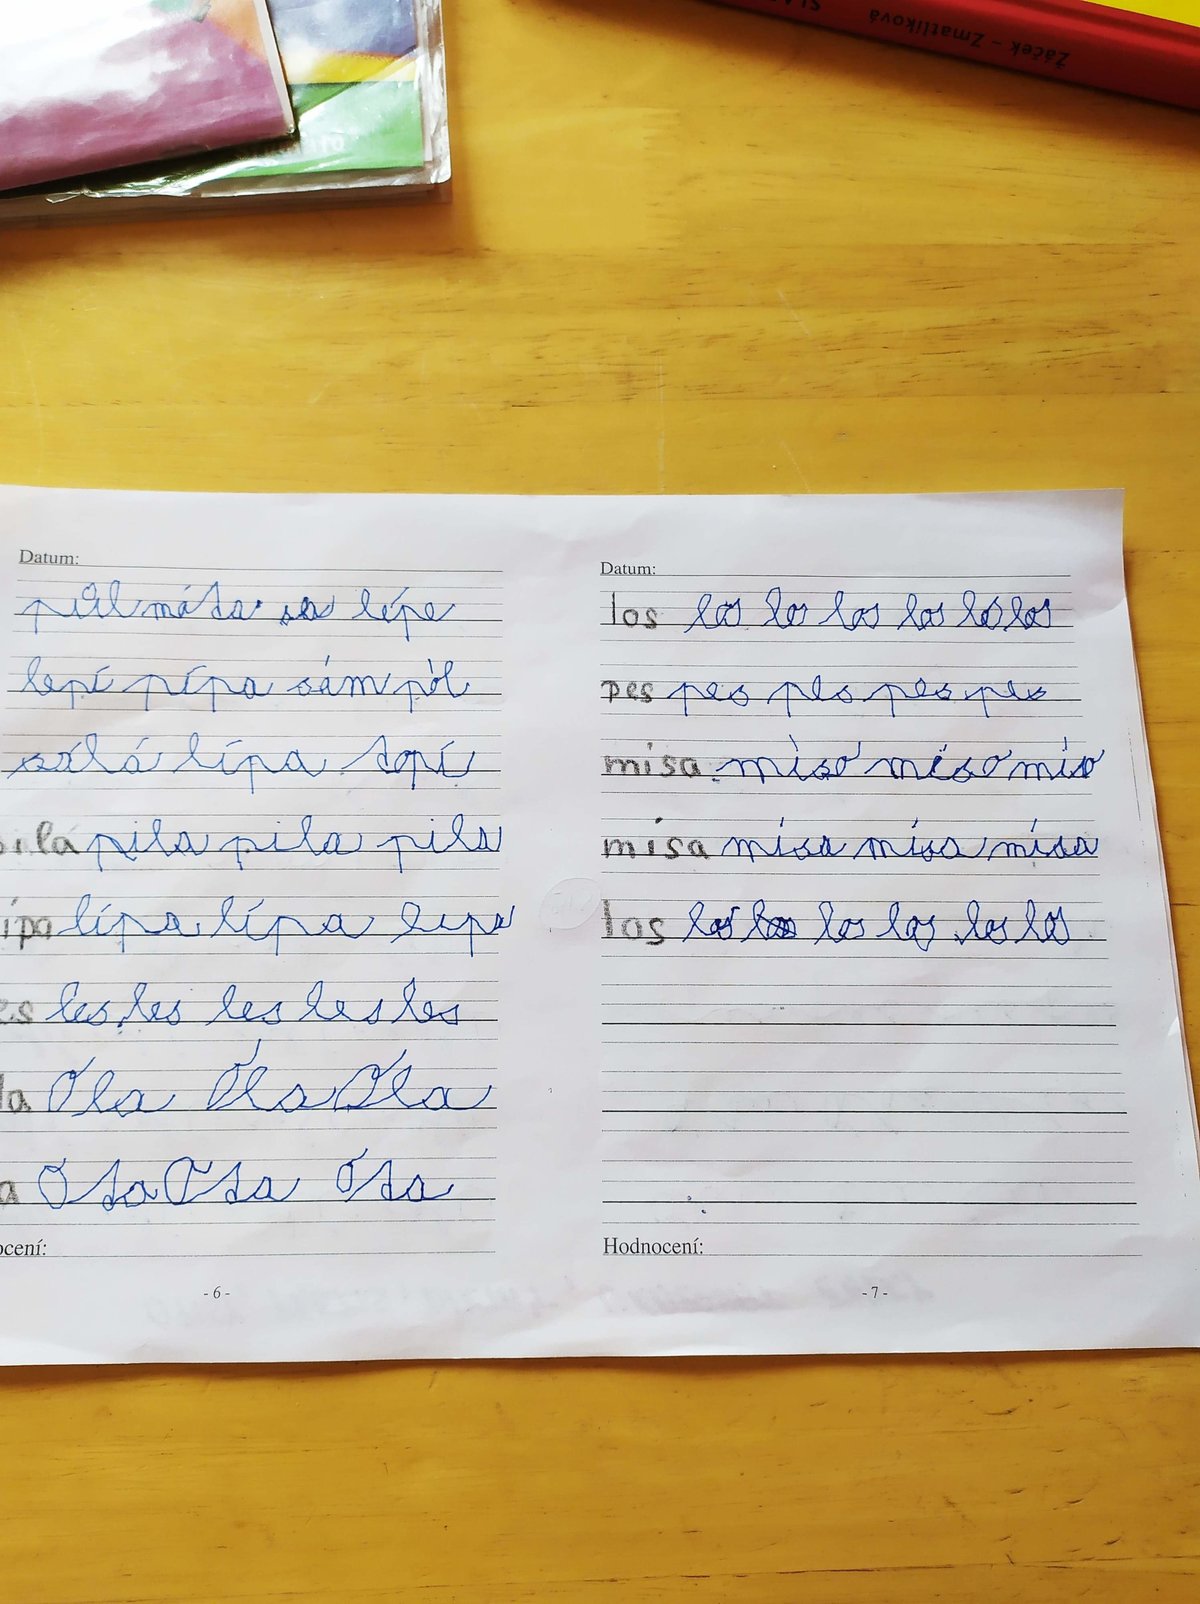 Žáček - Zmatlíková
Datum:
půl máta sa lépe
lepí pípa sám pól
lípa topí
pila pila pila
ípa lípa lípa lipa
es les les les les les
la Óla Óla Óla
a Óta Óta Óta
ocení:
- 6 -
Datum:
los los los los los los los
pes pes pes pes pes
misa
mísa mísa mísa mísa
los los los los los los los
Hodnocení:
- 7 -